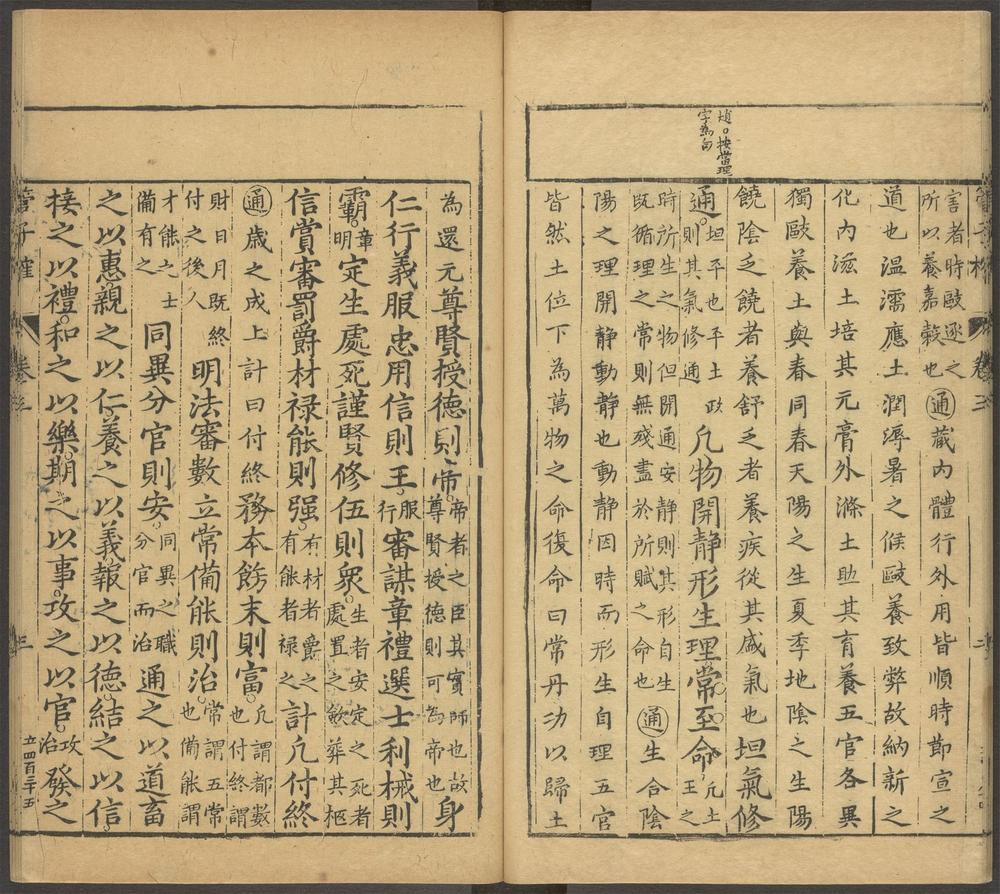 趙○按當理
字為句
害者時毆逐之
所以養嘉穀也
通藏內體行外用皆順時節宣之
道也溫濡應土潤溽暑之候毆養致弊故納新之
化內滋土培其元膏外滌土助其育養五官各異
獨毆養土與春同春天陽之生夏季地陰之生陽
饒陰乏饒者養舒乏者養疾從其盛氣也坦氣修
通坦平也平土政
則其氣修通
凡物開靜形生理常至命凡土王之
時所生之物但開通安靜則其形自生
既循理之常則無殘盡於所賦之命也
通生合陰
陽之理開靜動靜也動靜因時而形生自理五官
皆然土位下為萬物之命復命曰常丹功以歸土
為還元尊賢授德則帝帝者之臣其實師也故
尊賢授德則可為帝也
身
仁行義服忠用信則王服
行
審謀章禮選士利械則
霸章
明
定生處死謹賢修伍則眾生者安定之死者
處置之歛葬其柩
信賞審罰爵材祿能則强有材者爵之
有能者祿之
計凡付終
通歲之成上計曰付終務本飭末則富凡謂都數
也付終謂
財日月既終
付之後人
明法審數立常備能則治常謂五常
也備能謂
才能之士
備有之
同異分官則安同異之職
分官而治
通之以道畜
之以惠親之以仁養之以義報之以德結之以信
接之以禮和之以樂期之以事攻之以官攻
治
發之
管子榷
卷三
三
立四百三十五